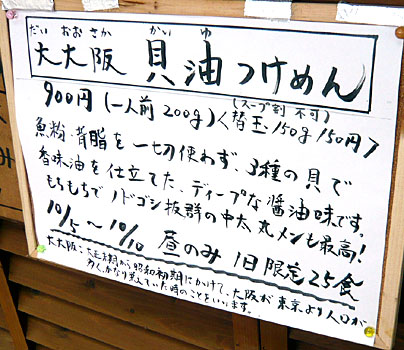 だい おおさか かい ゆ
大大阪 貝油つけめん
900円(一人前200g)
(スープ割 不可)
〈替玉150g150円〉
魚粉・背脂を一切使わず、3種の貝で
香味油を仕立てた、ディープな醤油味です。
もちもちでノドゴシ抜群の中太丸メンも最高!
10/5~10/10 昼のみ 1日限定25食
大大阪:大正末期から昭和初期にかけて、大阪が東京より人口が
多く、かなり栄えていた時のことをいいます。